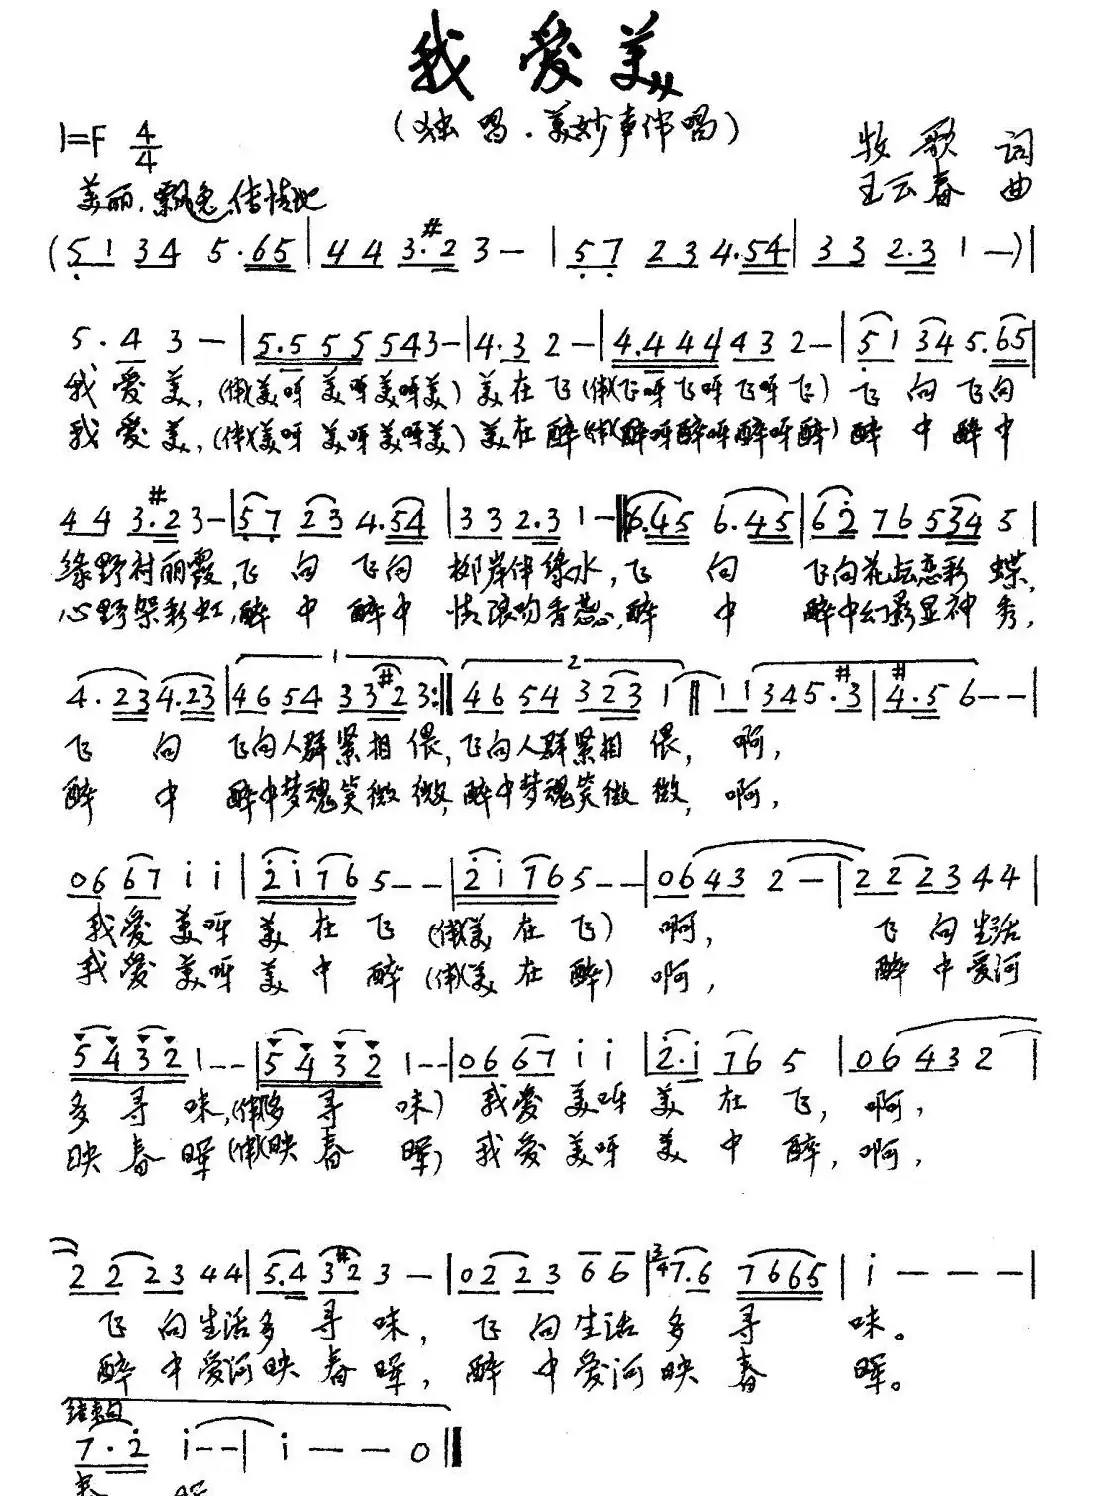 我爱美
(独唱.美妙声伴唱)
1=F 4/4
牧歌 词
美丽.飘逸.传情地
王云春 曲
(5 1 3 4 5.65|4 4 3.#2 3—|5 7 2 3 4.54|3 3 2.3 1—)|
5.4 3—|5.5 5 5 5 4 3—|4.3 2—|4.4 4 4 4 3 2—|5 1 3 4 5.65|
我爱美,(伴)(美呀美呀美呀美)美在飞(伴)(飞呀飞呀飞呀飞)飞向飞向
我爱美,(伴)(美呀美呀美呀美)美在醉(伴)(醉呀醉呀醉呀醉)醉中醉中
4 4 3.#2 3—|5 7 2 3 4.54|3 3 2.3 1—‖6.45 6.45|6 2 7 6 5 3 4 5|
绿野衬丽霞,飞向飞向 柳岸伴绿水,飞向 飞向花坛恋彩蝶,
心野架彩虹,醉中醉中 情浪吻香蕊,醉中 醉中幻影显神秀,
4.23 4.23|4 6 5 4 3 3 #2 3:‖4 6 5 4 3 2 3 1‖1 1 3 4 5.#3|#4.5 6——|
飞向 飞向人群紧相偎,飞向人群紧相偎,啊,
醉中 醉中梦魂笑微微,醉中梦魂笑微微,啊,
0 6 6 7 i i|2 i 7 6 5——|2 i 7 6 5——|0 6 4 3 2—|2 2 2 3 4 4|
我爱美呀美在飞(伴)(美在飞)啊,飞向生活
我爱美呀美中醉(伴)(美在醉)啊,醉中爱河
5 4 3 2 1——|5 4 3 2 1——|0 6 6 7 i i|2.i 7 6 5|0 6 4 3 2|
多寻味,(伴)(多寻味)我爱美呀美在飞,啊,
映春晖(伴)(映春晖)我爱美呀美中醉,啊,
2 2 2 3 4 4|5.4 3 #2 3—|0 2 2 3 6 6|2/4 7.6 7 6 6 5|i———|
飞向生活多寻味,飞向生活多寻味。
醉中爱河映春晖,醉中爱河映春晖。
结束句
7.2 i——|i——0‖